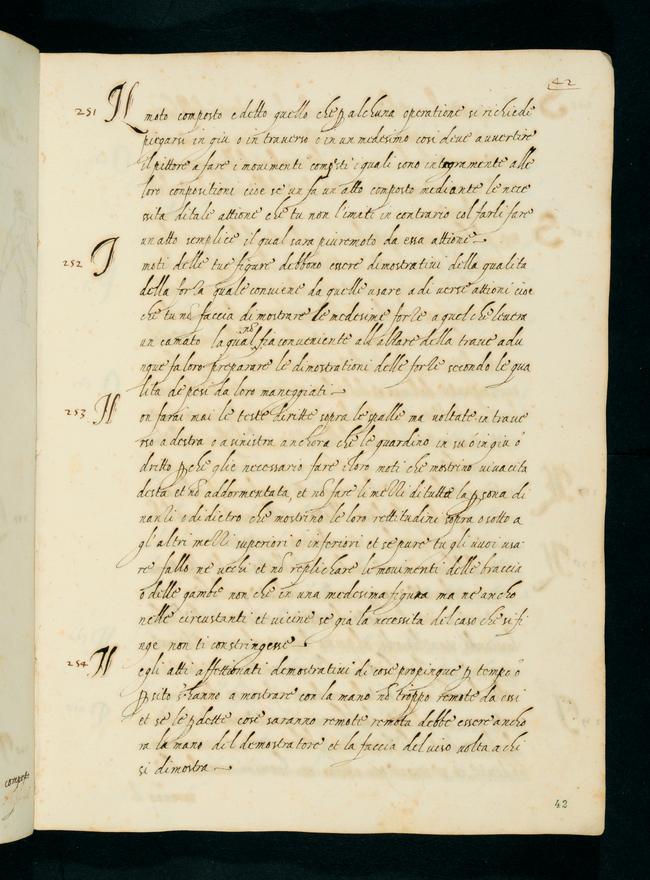 42
251 Il moto composto e detto quello che p alchuna operatione si richiede
piegarsi in giu o in traverso o in un medesimo cosi deve avvertire
il pittore a fare i movimenti composti i quali sono integramente alle
loro conpositioni cioe se un fa un atto composto mediante le nece
ssita di tale attione che tu non l'imati in contrario col farli fare
un atto semplice il qual sara piu remoto da essa attione
252 I moti delle tue figure debbono essere dimostrativi della qualita
della forza quale conviene da quelle usare a diverse attioni cioe
che tu nō faccia dimostrare le medesime forze a quel che levera
un camato la qual nō sia conveniente all'alzare della trave adu
nque fa loro preparare le dimostrationi delle forze secondo le qua
lita de pesi da loro maneggiati
253 Non farai mai le teste diritte sopra le spalle ma voltate in trave
rso a destra o a sinistra anchora che le guardino in su o in giu o
dritto p che glie necessario fare i loro moti che mostrino vivacita
desta et nō addormentata, et nō fare li mezzi di tutta la p sona di
nanzi o di dietro che mostrino le loro rettitudini sopra o sotto a
gl altri mezzi superiori o inferiori et se pure tu gli vuoi usa
re fallo ne vechi et nō replichare li movimenti delle braccia
o delle gambe non che in una medesima figura ma ne ancho
nelle circustanti et vicine se gia la necessita del caso che si fi
nge non ti constringesse
254 Negli atti affettionati demostrativi di cose propinque p tempo o
p sito s'hanno a mostrare con la mano nō troppo remote da essi
et se le p dette cose saranno remote remota debbe essere ancho
ra la mano del demostratore et la faccia del viso volta a chi
si dimostra
composto
42